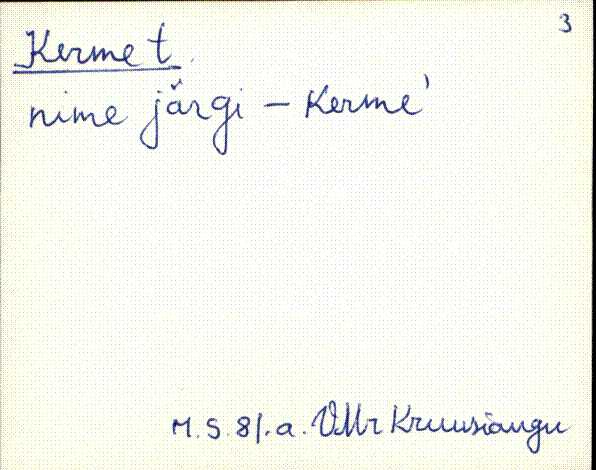 3
Kerme t
nime järgi – Kerme'
M. S. 81. a. VMr Kruusiaugu